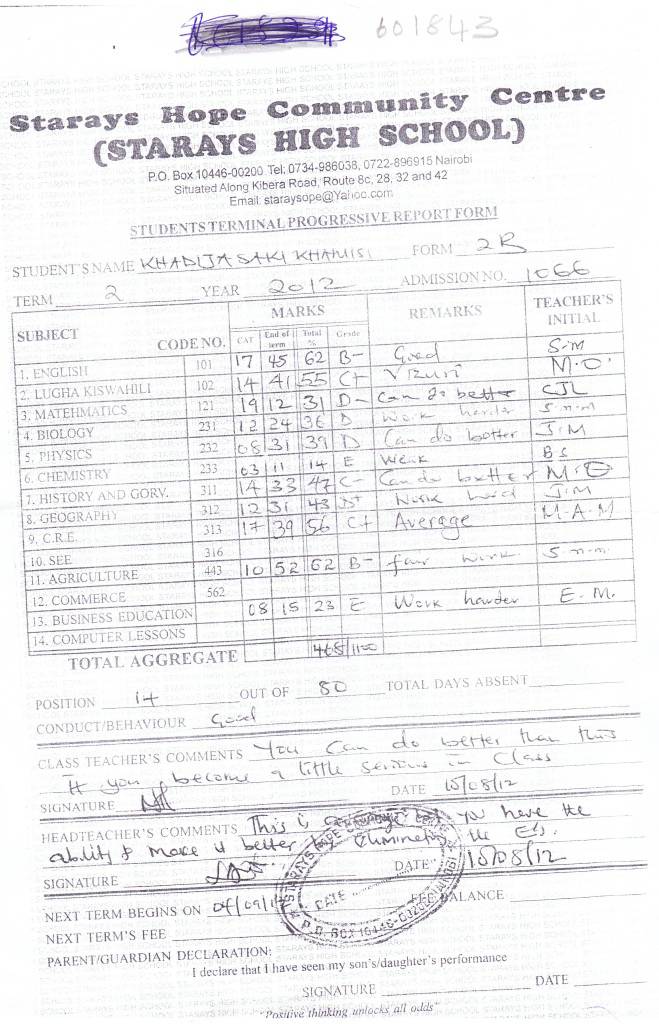 601843
Starays Hope Community Centre
(STARAYS HIGH SCHOOL)
P.O. Box 10446-00200 Tel; 0734-986038, 0722-896915 Nairobi
Situated Along Kibera Road, Route 8c, 28, 32 and 42
Email: staraysope@Yahoo.com
STUDENTS TERMINAL PROGRESSIVE REPORT FORM
STUDENT'S NAME KHADIJA SAKI KHAMISI FORM 2B
TERM 2 YEAR 2012 ADMISSION NO. 1066
SUBJECT CODE NO. MARKS REMARKS TEACHER'S INITIAL
CAT End of term Total % Grade
1. ENGLISH 101 17 45 62 B- Good S.M
2. LUGHA KISWAHILI 102 14 41 55 C+ Vizuri M.O.
3. MATEHMATICS 121 19 12 31 D- Can do better CJL
4. BIOLOGY 231 12 24 36 D Work harder S.n.m
5. PHYSICS 232 08 31 39 D Can do better J.M
6. CHEMISTRY 233 03 11 14 E Weak BS
7. HISTORY AND GORV. 311 14 33 47 C- Can do better M.O
8. GEOGRAPHY 312 12 31 43 D+ Work hard J.M
9. C.R.E. 313 17 39 56 C+ Average M.A.M
10. SEE 316
11. AGRICULTURE 443 10 52 62 B- fair work S.n.m.
12. COMMERCE 562
13. BUSINESS EDUCATION 08 15 23 E Work harder E.M.
14. COMPUTER LESSONS
TOTAL AGGREGATE 468/1100
POSITION 14 OUT OF 80 TOTAL DAYS ABSENT
CONDUCT/BEHAVIOUR Good
CLASS TEACHER'S COMMENTS You Can do better than this
If you become a little serious in Class
SIGNATURE DATE 10/08/12
HEADTEACHER'S COMMENTS This is average but you have the
ability to make it better by eliminating the Es.
SIGNATURE DATE 10/08/12
NEXT TERM BEGINS ON 04/09/12 FEE BALANCE
NEXT TERM'S FEE
STARAYS HOPE COMMUNITY
DATE
P.O. BOX 10446-
PARENT/GUARDIAN DECLARATION:
I declare that I have seen my son's/daughter's performance
SIGNATURE DATE
"Positive thinking unlocks all odds"